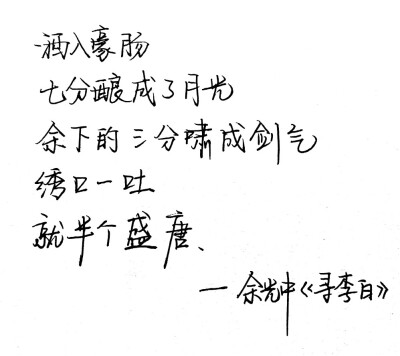 酒入豪肠
七分酿成了月光
余下的三分啸成剑气
绣口一吐
就半个盛唐、
— 余光中《寻李白》